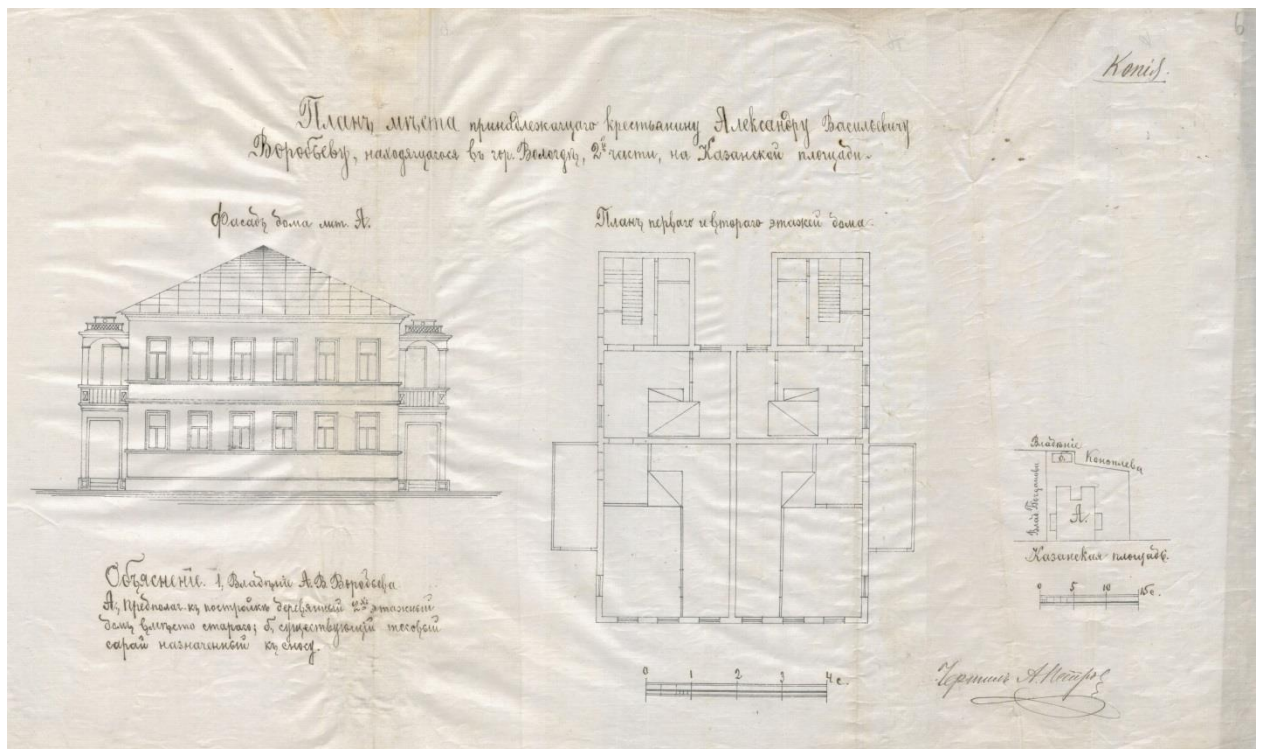 6
Копія.
Планъ мѣста принадлежащаго крестьянину Александру Васильевичу
Воробьеву, находящагося въ гор. Вологдѣ, 2й части, на Казанской площади.
Фасадъ дома лит. А.
Планъ перваго и втораго этажей дома.
Владѣніе
Коноплева
б.
А.
Казанская площадь.
0 5 10 15 с.
Объясненіе. 1, Владѣніе А. В. Воробьева
А, Предполаг. къ постройкѣ деревянный 2хъ этажный
домъ вмѣсто стараго; б, существующій тесовый
сарай назначенный къ сносу.
0 1 2 3 4 с.
Чертилъ А. Петров